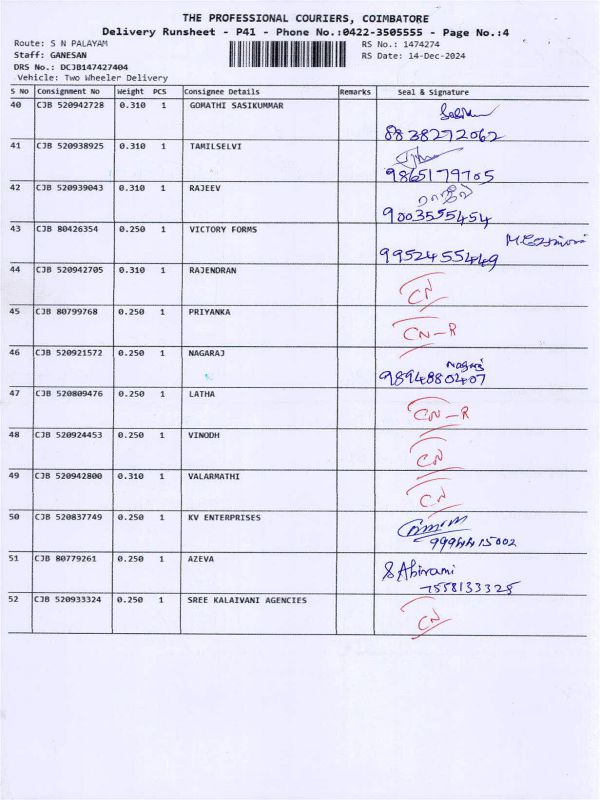 THE PROFESSIONAL COURIERS, COIMBATORE
Delivery Runsheet - P41 - Phone No.:0422-3505555 - Page No.:4
Route: S N PALAYAM RS No.: 1474274
Staff: GANESAN RS Date: 14-Dec-2024
DRS No.: DCJB147427404
Vehicle: Two Wheeler Delivery
S No Consignment No Weight PCS Consignee Details Remarks Seal & Signature
40 CJB 520942728 0.310 1 GOMATHI SASIKUMMAR
8838272062
41 CJB 520938925 0.310 1 TAMILSELVI
9865179705
42 CJB 520939043 0.310 1 RAJEEV ராஜீவ்
9003555454
43 CJB 80426354 0.250 1 VICTORY FORMS
9952455449
44 CJB 520942705 0.310 1 RAJENDRAN CN
45 CJB 80799768 0.250 1 PRIYANKA CN-R
46 CJB 520921572 0.250 1 NAGARAJ Nagaraj
9894880407
47 CJB 520809476 0.250 1 LATHA CN-R
48 CJB 520924453 0.250 1 VINODH CN
49 CJB 520942800 0.310 1 VALARMATHI CN
50 CJB 520837749 0.250 1 KV ENTERPRISES
9994415002
51 CJB 80779261 0.250 1 AZEVA S Abirami
7558133325
52 CJB 520933324 0.250 1 SREE KALAIVANI AGENCIES CN